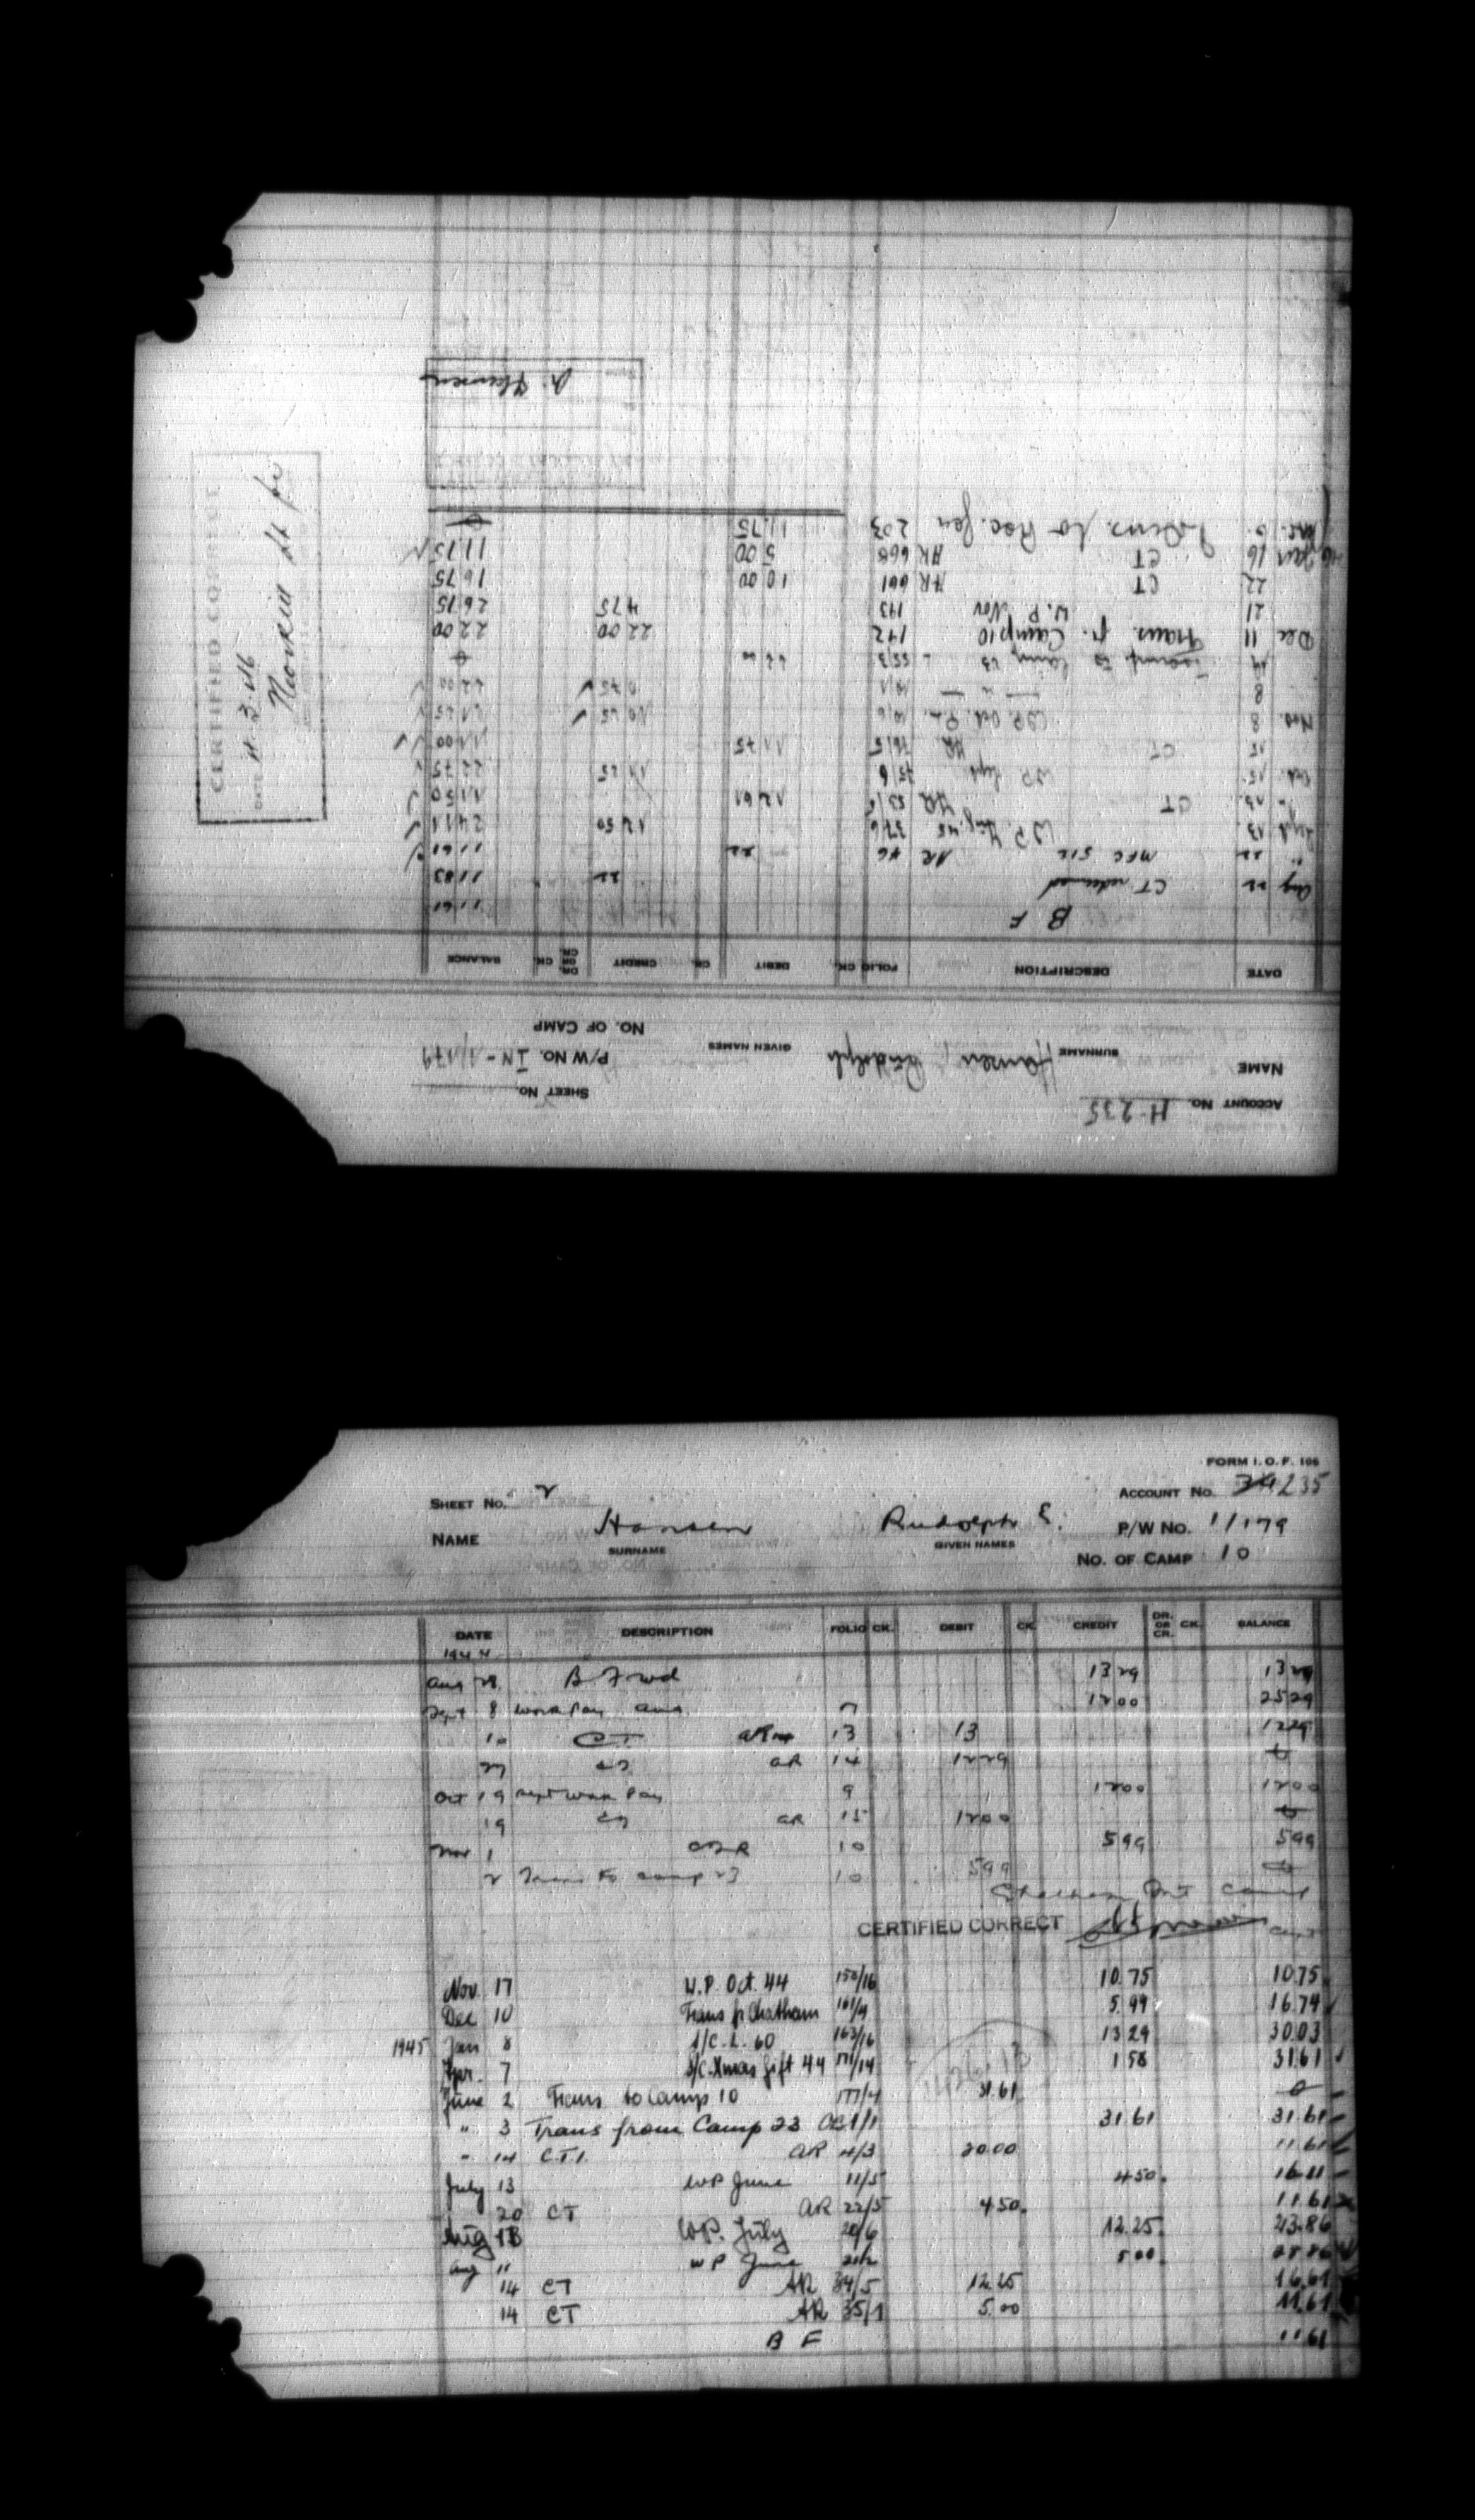 FORM I. O. F. 106
SHEET No. 2 ACCOUNT No. 235
NAME Hansen Rudolph E. P/W No. 11179
SURNAME GIVEN NAMES
NO. OF CAMP 10
DATE DESCRIPTION FOLIO CK. DEBIT CK. CREDIT DR. OR CR. CK. BALANCE
1944
Aug 28 B Fwd 13 29 13 29
Sept 8 Work Pay Aug 7 12 00 25 29
10 CT AR 13 13 12 29
27 CT AR 14 12 29
Oct 19 Sept Work Pay 9 12 00 12 00
19 CT AR 15 12 00
Nov 1 10 5 99 5 99
2 Trans to Camp 23 10 5 99
Chatham Ont Camp
CERTIFIED CORRECT
Nov. 17 W.P. Oct. 44 150/16 10.75 10.75
Dec 10 Trans fr Chatham 161/9 5.99 16.74
1945 Jan 8 S/C. L. 60 163/16 13 29 30.03
Apr. 7 S/C. Xmas gift 44 171/14 1 58 31.61
June 2 Trans to Camp 10 177/4 31.61
" 3 Trans from Camp 23 1/1 31.61 31.61
" 14 C.T. AR 4/3 20.00 11.61
July 13 WP June 11/5 4 50 16.11
20 CT AR 22/5 4 50 11.61
Aug 13 WP. July 20/6 12.25 23.86
Aug 11 WP June 5 00 28.86
14 CT AR 34/5 12.25 16.61
14 CT AR 35/1 5.00 11.61
B F 11 61
ACCOUNT No. H-235 SHEET No.
NAME Hansen, Rudolph P/W No. IN-11179
SURNAME GIVEN NAMES
NO. OF CAMP
DATE DESCRIPTION FOLIO CK. DEBIT CK. CREDIT DR. OR CR. CK. BALANCE
B F 11 61
Aug 22 CT returned 22 11 83
" 22 MFC 512 AR 46 22 11 61
Sept 13 W.P. Aug. 45 37/6 12 50 24 11
" 13 CT AR 53/6 12 61 11 50
Oct 15 WP Sept 75/6 11 25 22 75
15 CT AR 76/5 11 75 11 00
Nov. 8 WP. Oct. 10/6 10 25 21 25
8 — " — 10/1 0 75 22 00
19 Transf to Camp 23 55/3 22 00
Dec 11 Trans. fr. Camp 10 142 22 00 22 00
21 W. P. Nov 143 4 75 26 75
22 CT AR 661 10 00 16 75
46 Jan 16 CT AR 668 5 00 11 75
Trans. to Rec. Gen 203 11.75
CERTIFIED CORRECT